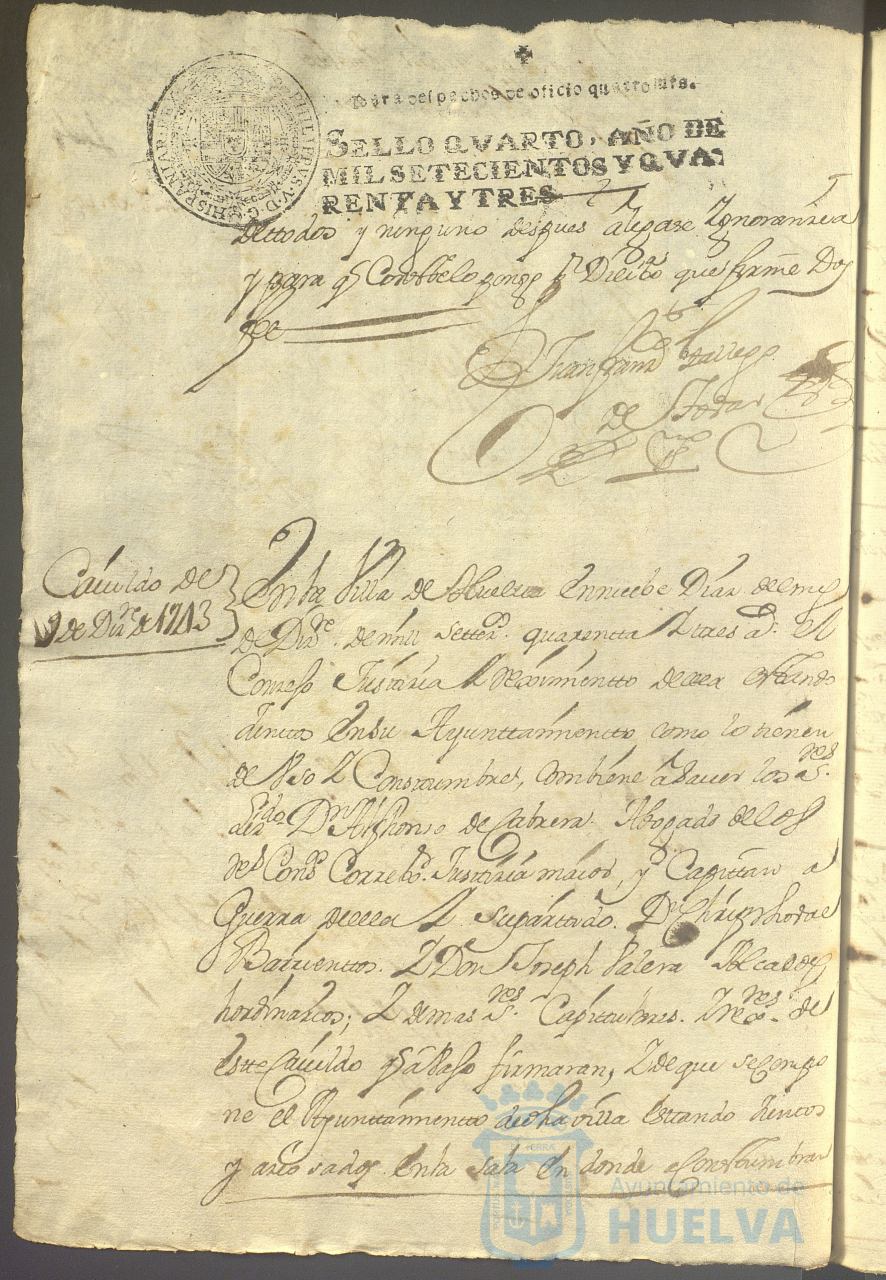 Para despachos de oficio quatro mrs.
SELLO QVARTO, AÑO DE
MIL SETECIENTOS Y QVA-
RENTA Y TRES
PHILIPPVS V D G HISPANIAR REX
de ttodos y ninguno despues alegase Ygnoranzia
y para q Constte lo pongo pr Dilixa que firme Doy
fee
Juan Gallego
de
Cavildo de
9 de Dizre de 1743
En la Villa de Huelva en nuebe Dias del mes
de Dizre de mill settezs quarentta Y tres as el
Conzejo Justizia Y Reximientto de ella esttando
Junttos En su Ayunttamientto como lo tienen
de Vso Y Costtumbre, combiene a saver los ss res
Lizdo Dn Alphonso de Cabrera Abogado de los
Rs Consos Correxor Justizia maior, y Capittan a
Guerra de ella Y su parttido. Dn Christhoval
Barrienttos Y Don Joseph Valera Alcaldes
hordinarios; Y demas ss res Capittulares Y de
este Cavildo q avaxo firmaran, Y de que se compo
ne el Ayunttamientto de dha villa esttando Junttos
y En la Sala En donde acosttumbran
Ayuntamiento de
HUELVA